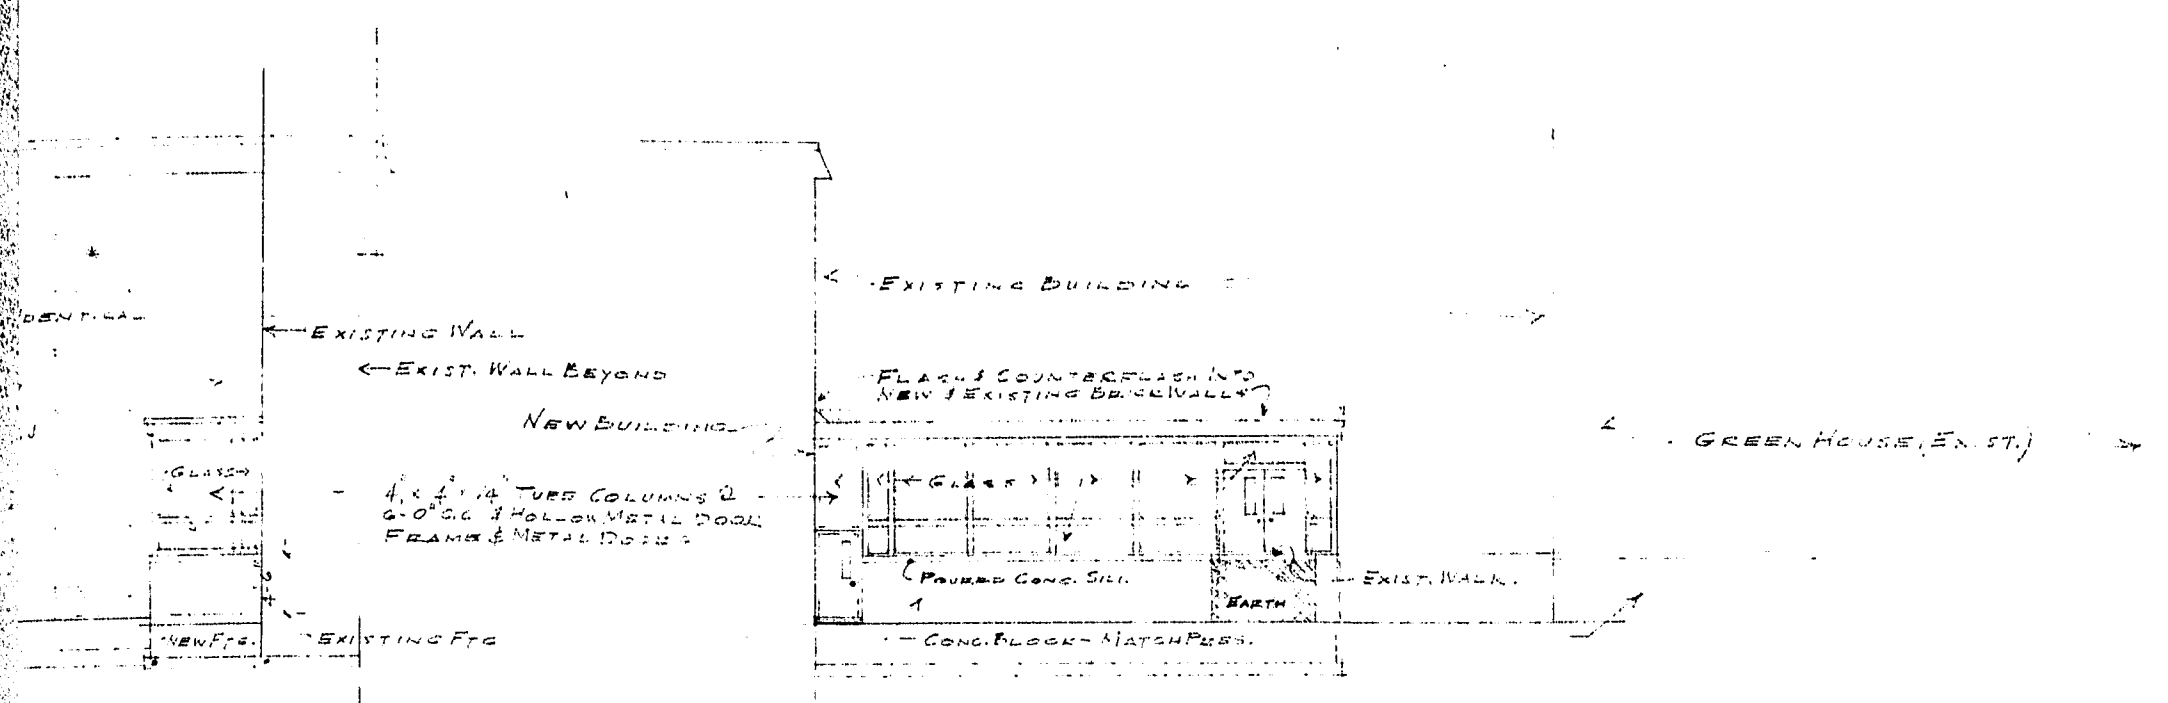 EXISTING BUILDING
DENTICAL
EXISTING WALL
EXIST. WALL BEYOND
FLASH & COUNTERFLASH INTO
NEW & EXISTING BRICK WALLS
NEW BUILDING
GREEN HOUSE (EXIST.)
GLASS
GLASS
4" x 4" x 1/4" TUBE COLUMNS @
6-0" O.C. & HOLLOW METAL DOOR
FRAME & METAL DOORS
POURED CONC. SILL.
EXIST. WALK.
EARTH
NEW FTG.
EXISTING FTG
CONC. BLOCK - MATCH PRES.